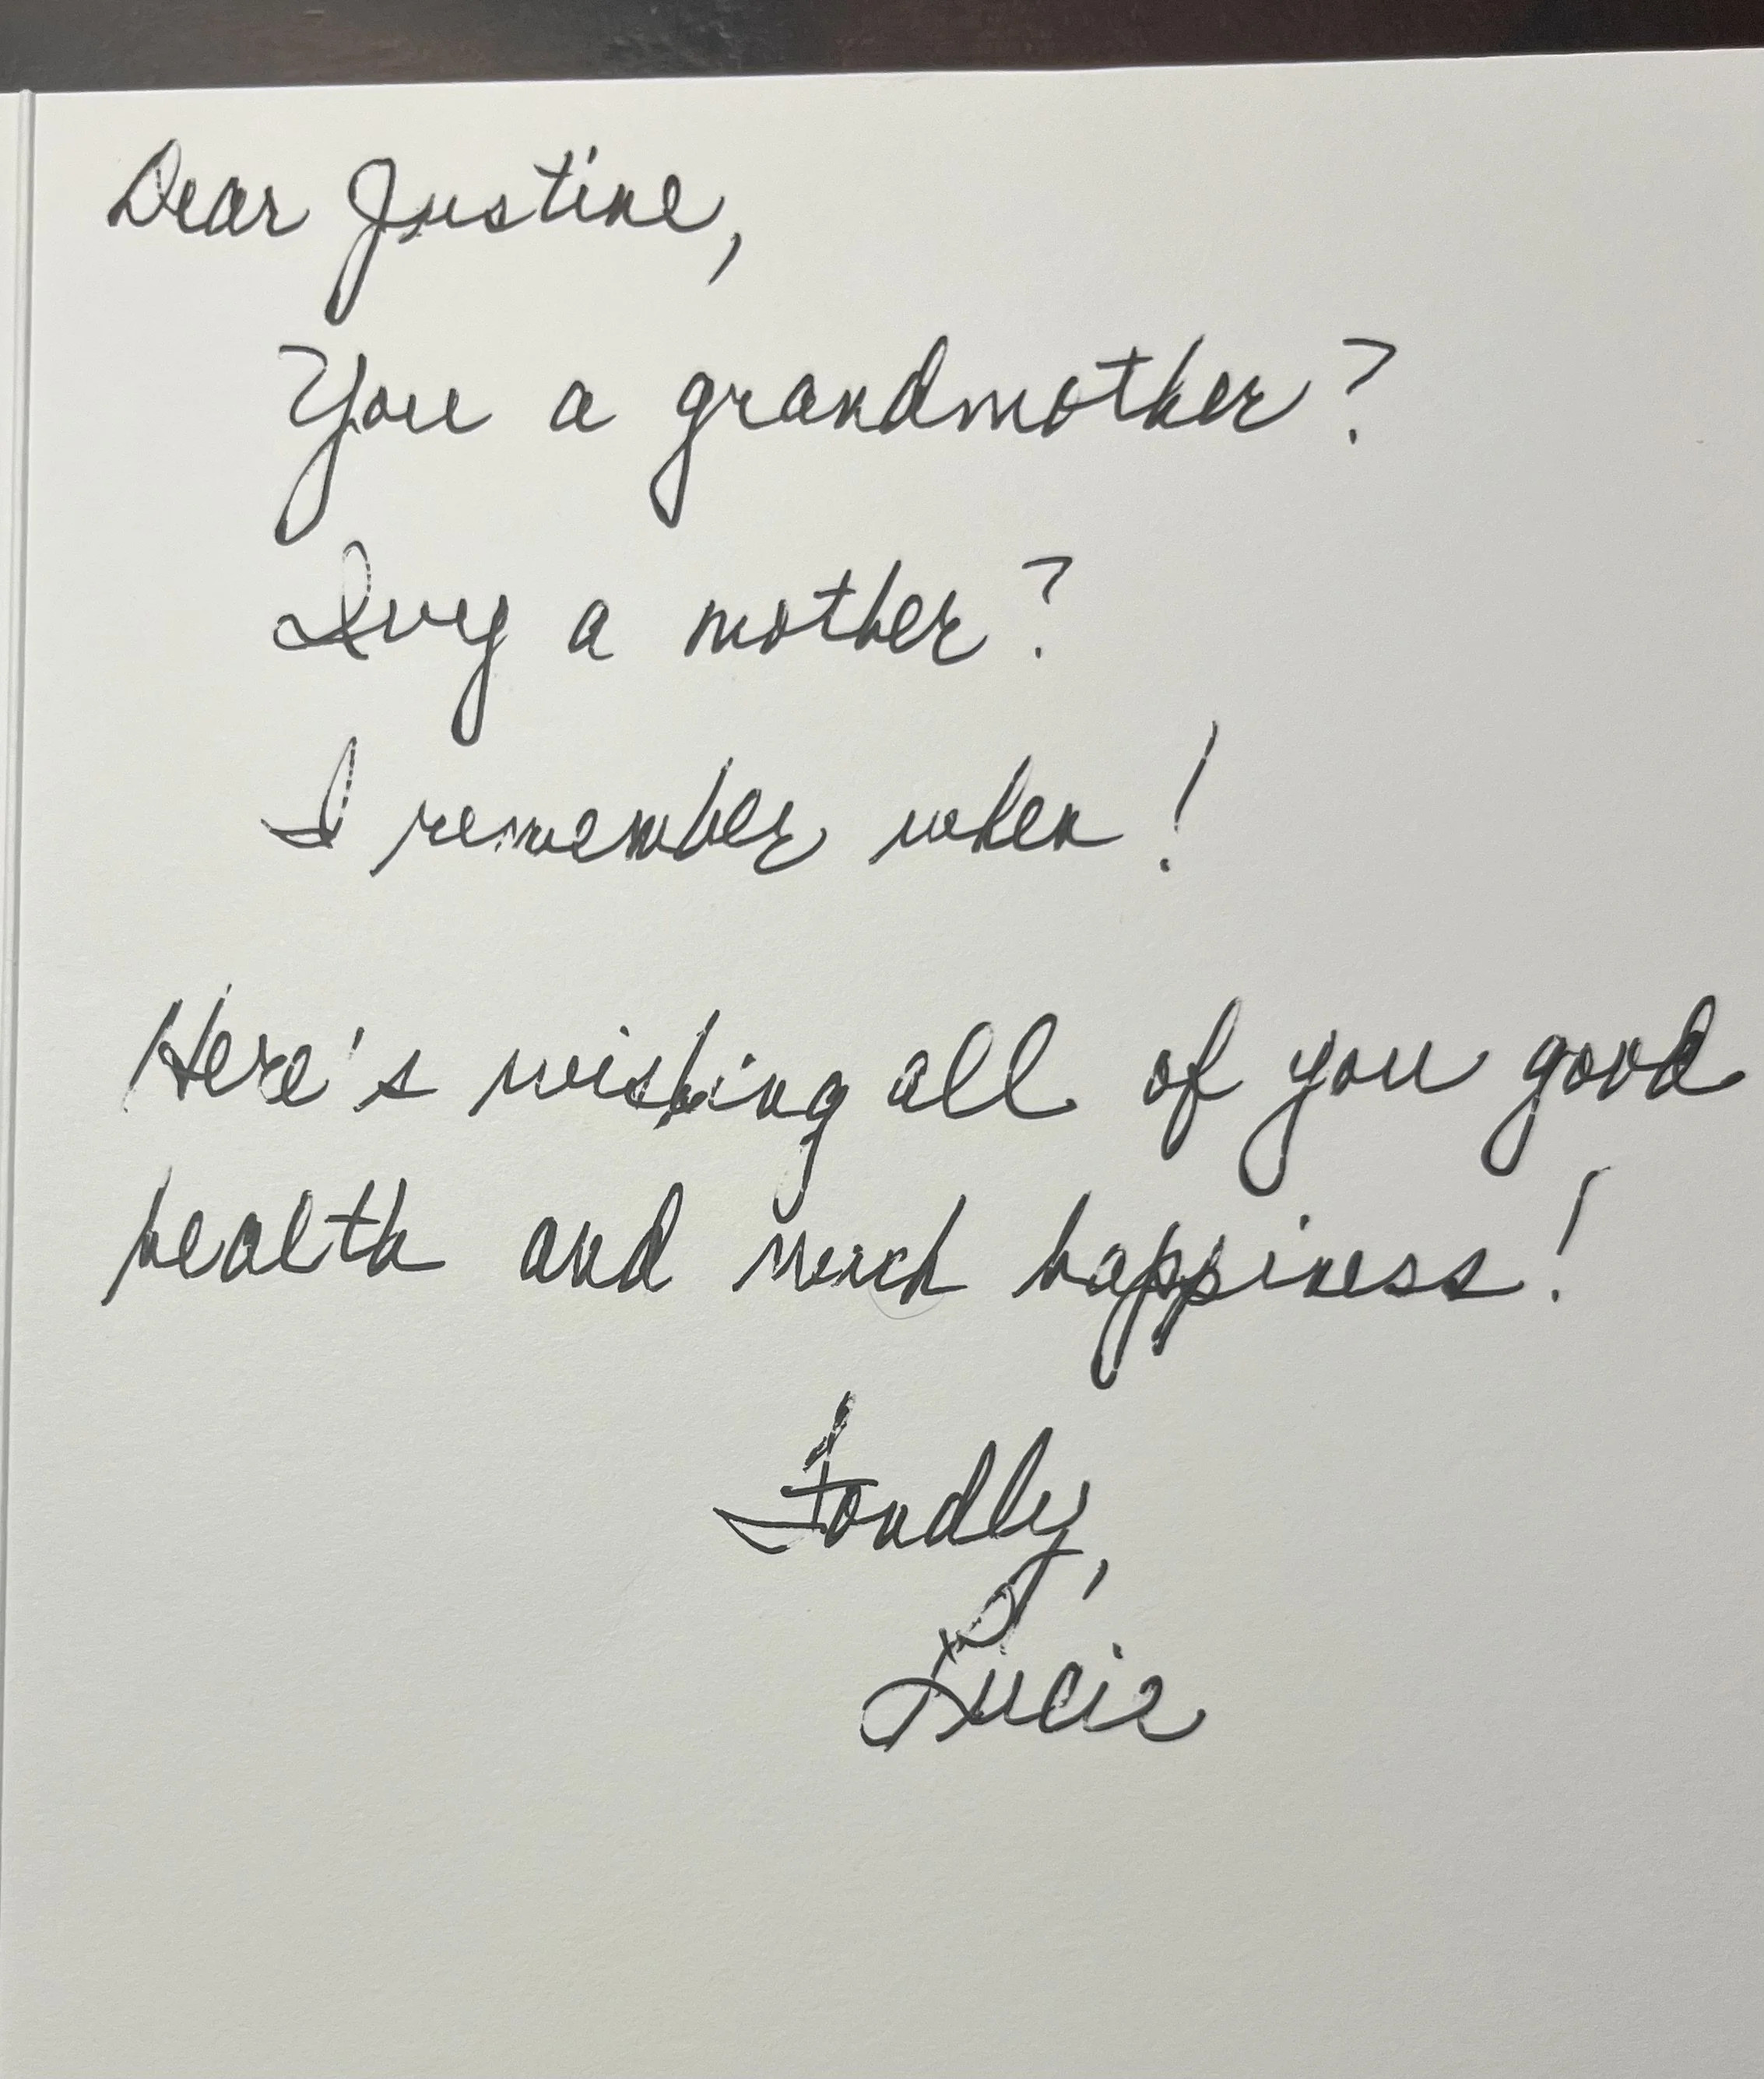 Dear Justine,
You a grandmother?
Ivy a mother?
I remember when!
Here's wishing all of you good
health and much happiness!
Fondly,
Lucie